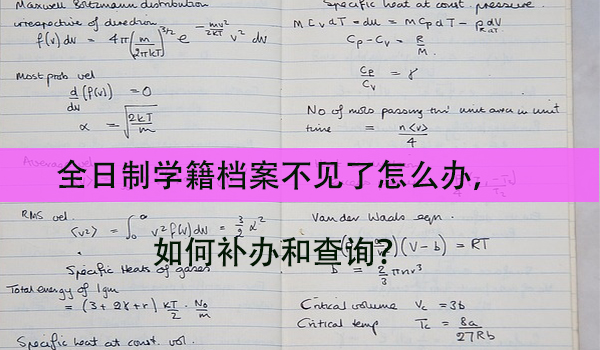 Maxwell Boltzmann distribution
irrespective of direction
f(v)dv = 4π(m/2πkT)^3/2 e^-mv²/2kT v² dv
Most prob vel
d/dv (f(v)) = 0
α = √2kT/m
RMS vel.
<v²> = ∫₀^∞ v² f(v)dv = 3/2 α²
Specific Heats of gases
Total energy of 1gm
= (3 + 2x + r) kT/2 · N₀/m
Specific heat at const. vol.
Specific heat at const. pressure.
Cp - Cv = R/M
Cp/Cv = γ
No of mols passing thru' unit area in unit
time = n<v>/4
全日制学籍档案不见了怎么办,
如何补办和查询?
Van der Waals eqn.
(V-b) = RT
b = 2/3 πnr³
Critical volume Vc = 3b
Critical temp Tc = 8a/27Rb